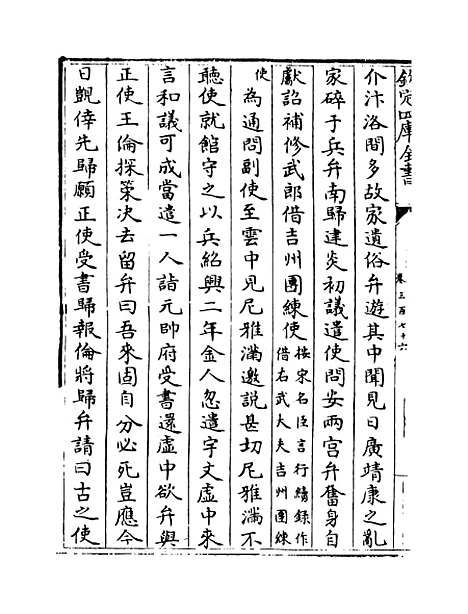 欽定四庫全書
卷三百七十六
介汴洛間多故家遺俗弁遊其中聞見日廣靖康之亂
家碎于兵弁南歸建炎初議遣使問安兩宮弁奮身自
獻詔補修武郎借吉州團練使按宋名臣言行續錄作
借右武大夫吉州團練
使為通問副使至雲中見尼雅滿邀說甚切尼雅滿不
聽使就館守之以兵紹興二年金人忽遣宇文虛中來
言和議可成當遣一人詣元帥府受書還虛中欲弁與
正使王倫探策決去留弁曰吾來固自分必死豈應今
日覬倖先歸願正使受書歸報倫將歸弁請曰古之使